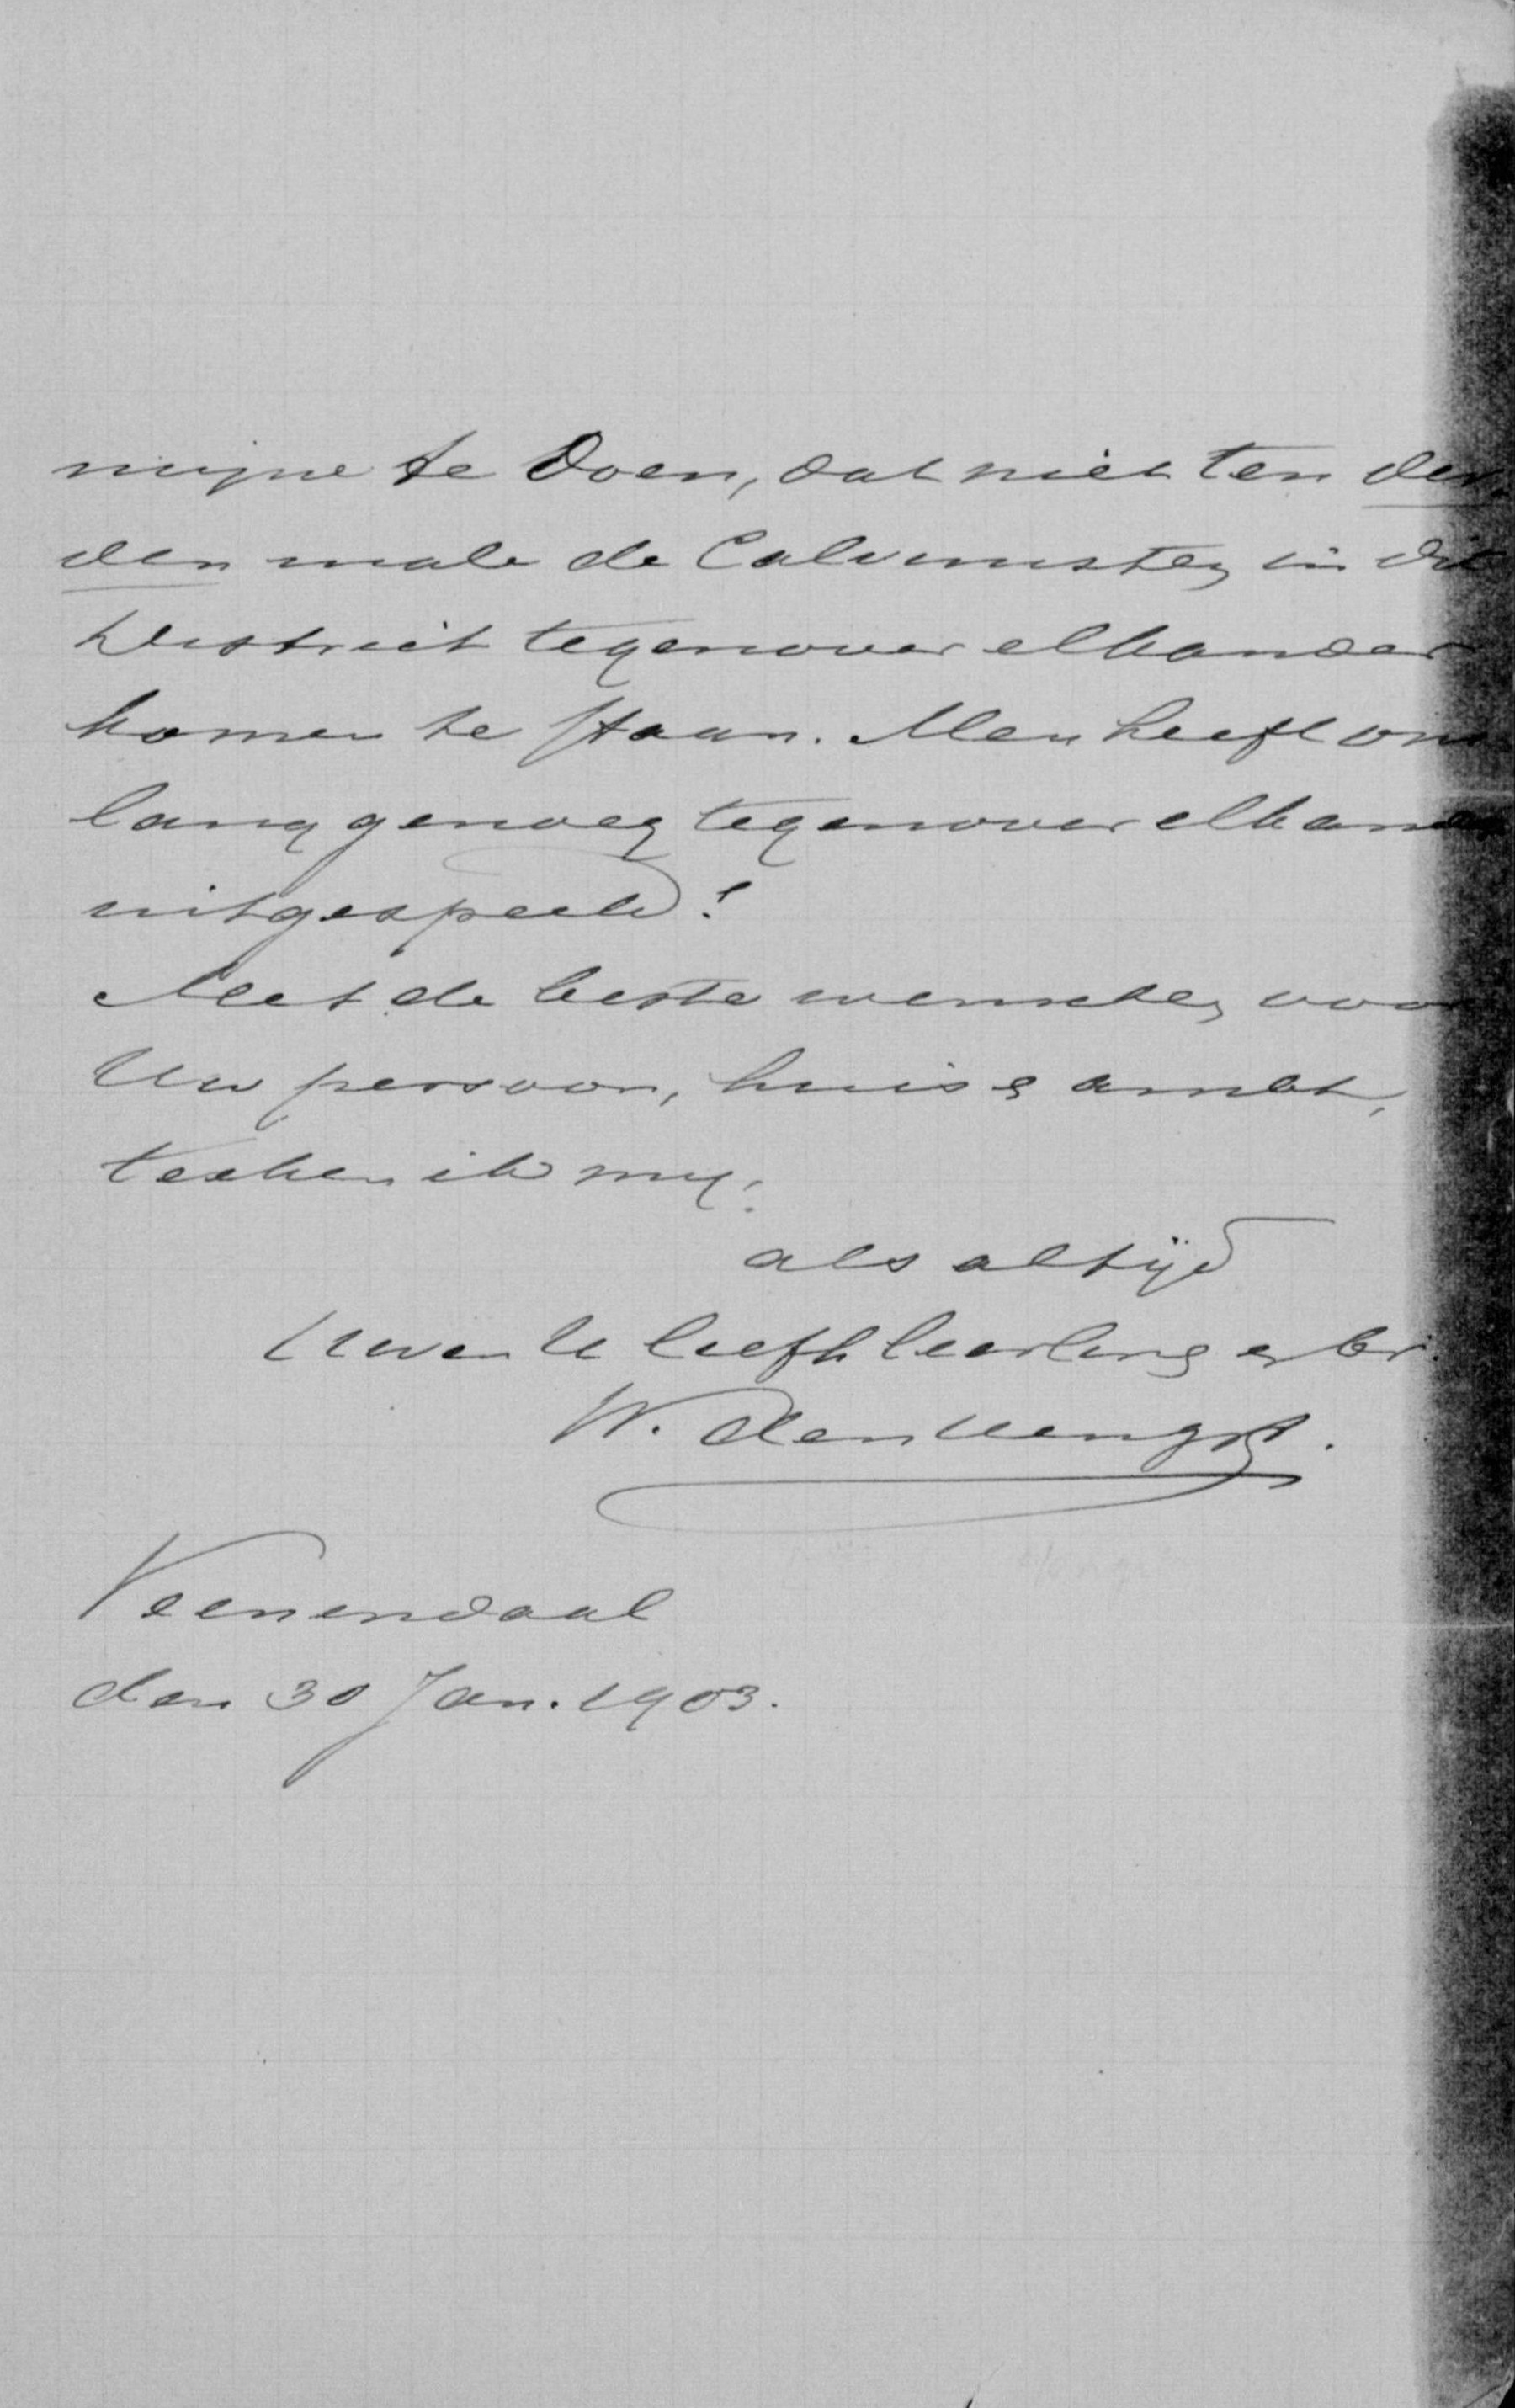 mijne te doen, dat niet ten der-
den male de Calvinisten in dit
District tegenover elkander
komen te staan. Men heeft ons
lang genoeg tegenover elkander
uitgespeeld!
Met de beste wenschen voor
Uw persoon, huis & ambt,
teeken ik mij,
als altijd
Uwen U liefh leerling en br.
W. den Hengst.
Veenendaal
den 30 Jan. 1903.